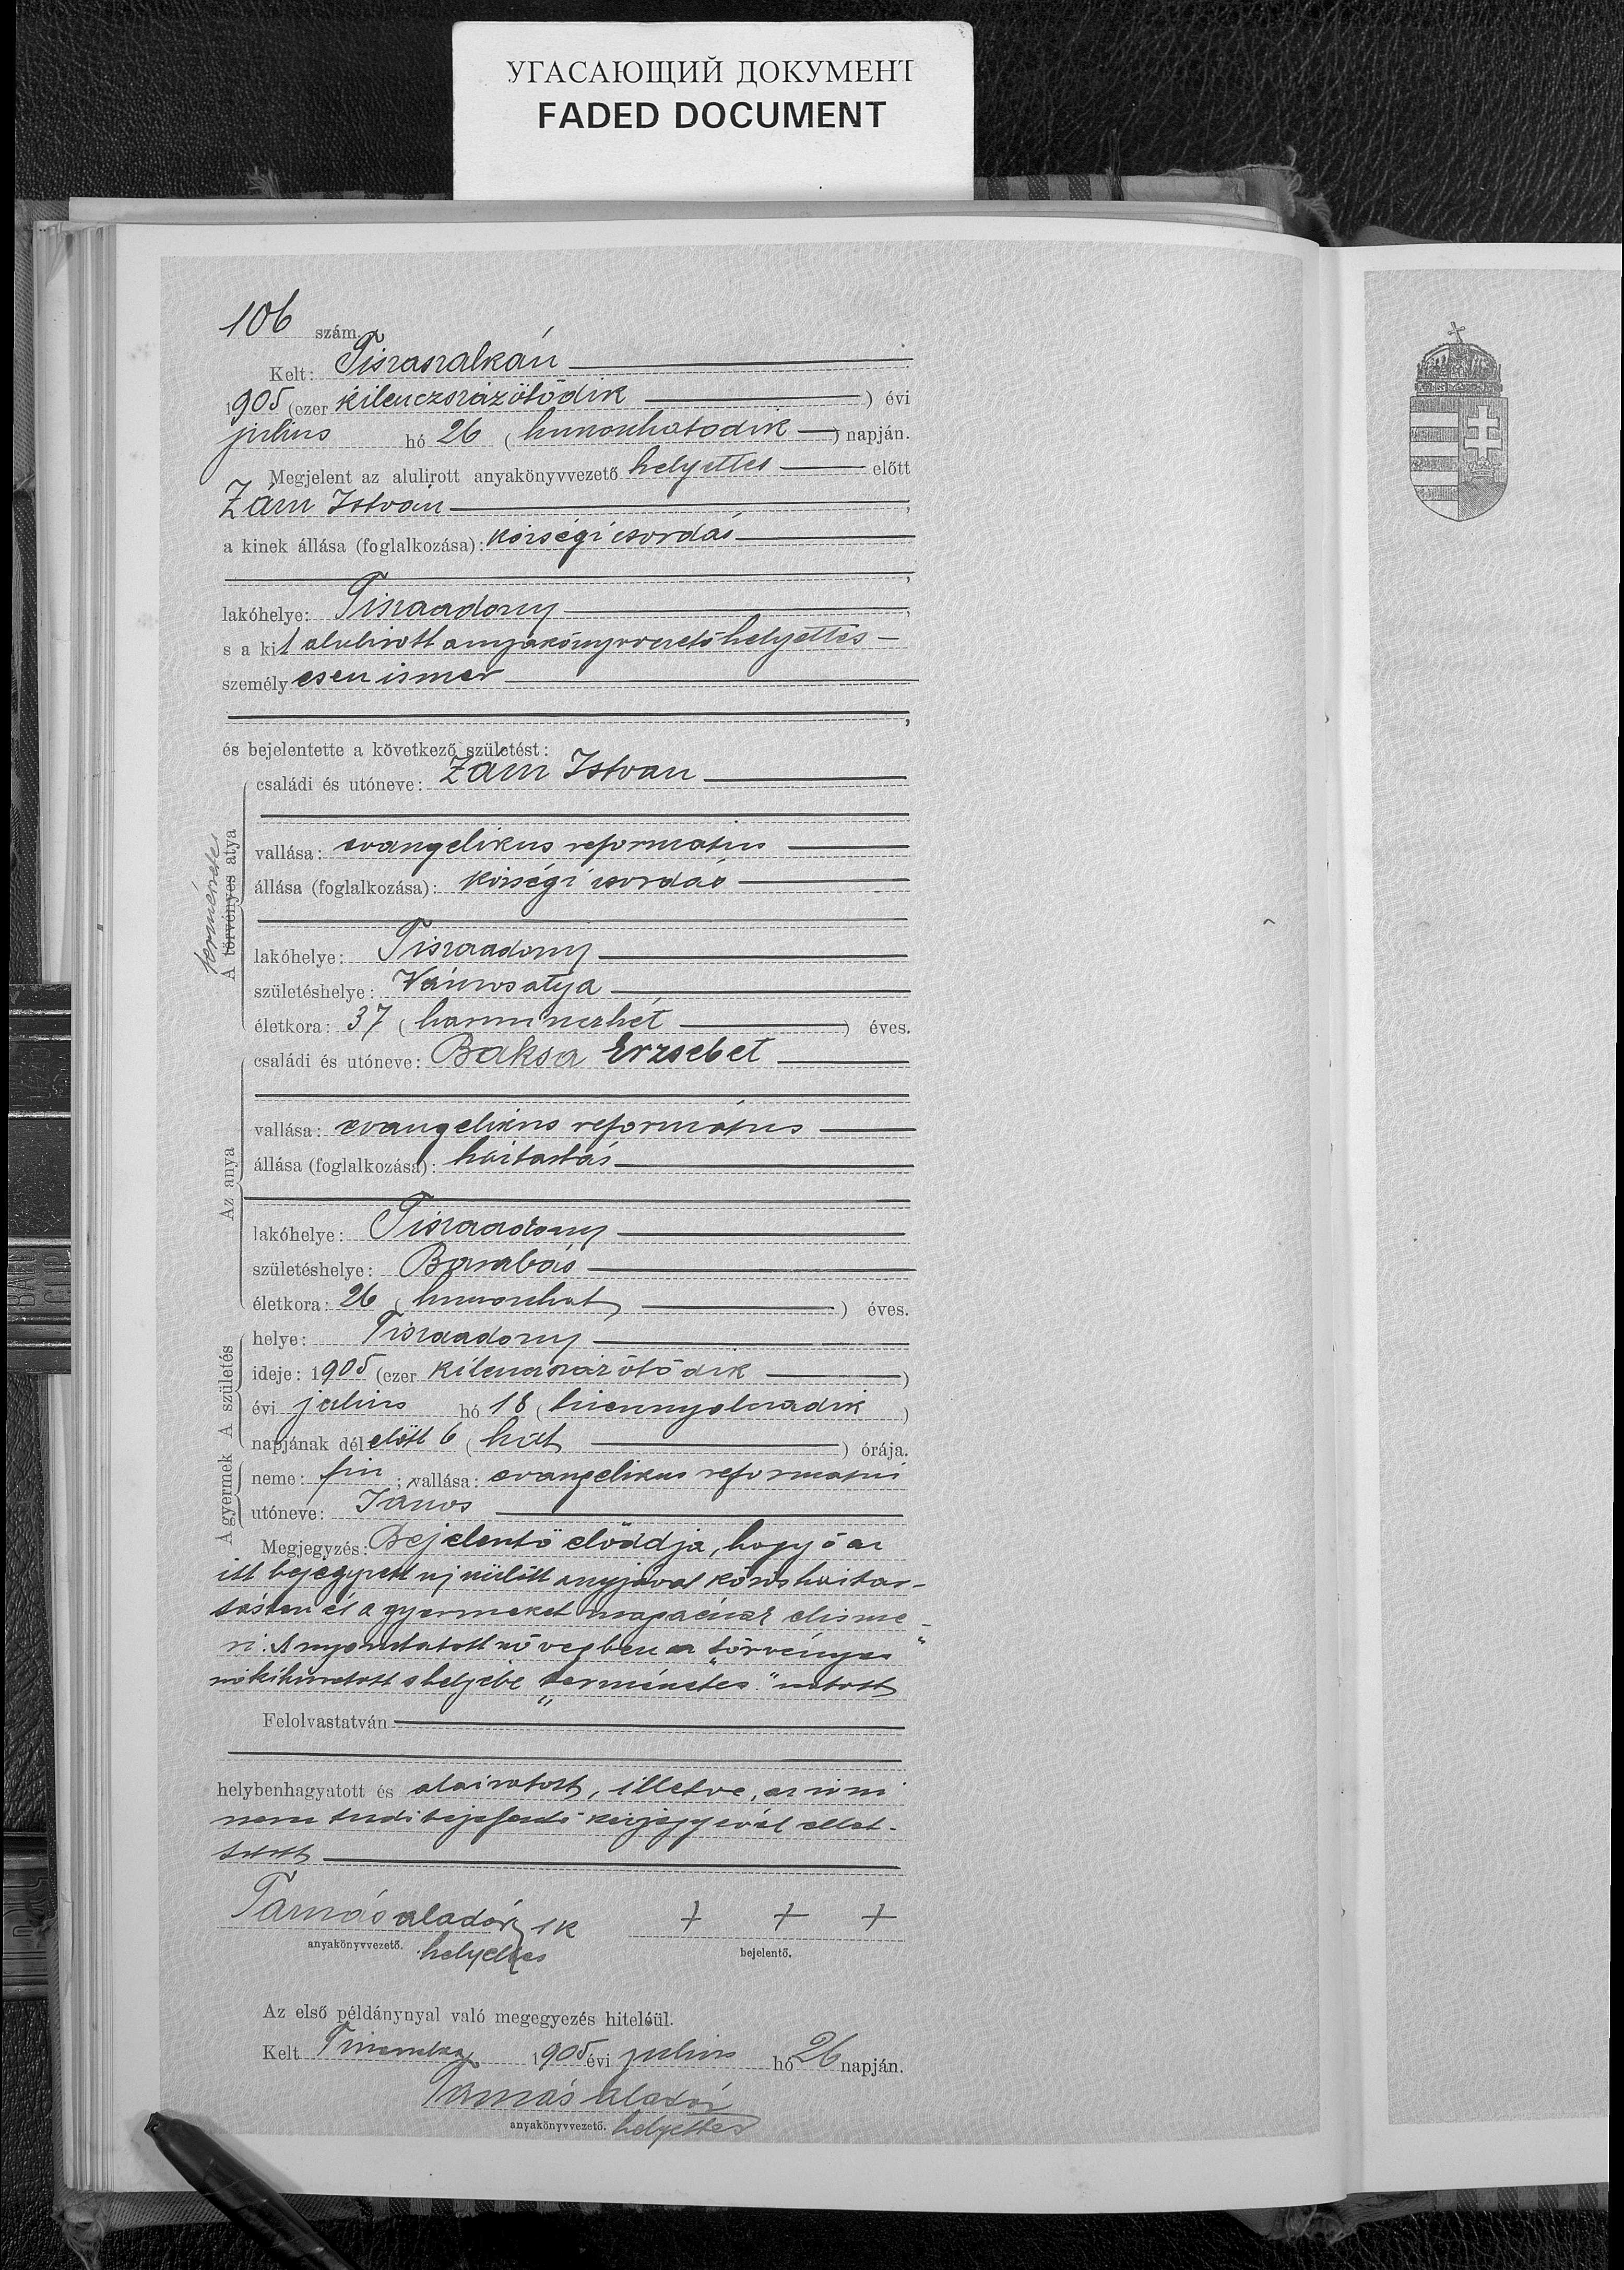 УГАСАЮЩИЙ ДОКУМЕНТ
FADED DOCUMENT
106 szám.
Kelt: Tiszaszalkán
1905 (ezer kilenczszázötödik) évi
julius hó 26 (huszonhatodik) napján.
Megjelent az alulirott anyakönyvvezető helyettes előtt
Zám István,
a kinek állása (foglalkozása): községi csordás
,
lakóhelye: Tiszaadony,
s a kit alulirott anyakönyvvezető helyettes
személyesen ismer
,
és bejelentette a következő születést:
A törvényes atya
természetes
családi és utóneve: Zám István
vallása: evangelikus református
állása (foglalkozása): községi csordás
lakóhelye: Tiszaadony
születéshelye: Vámosatya
életkora: 37 (harminczhét) éves.
Az anya
családi és utóneve: Baksa Erzsébet
vallása: evangelikus református
állása (foglalkozása): háztartás
lakóhelye: Tiszaadony
születéshelye: Barabás
életkora: 26 (huszonhat) éves.
A gyermek A születés
helye: Tiszaadony
ideje: 1905 (ezer kilenczszázötödik)
évi julius hó 18 (tizennyolczadik)
napjának délelőtt 6 (hat) órája.
neme: fiu; vallása: evangelikus református
utóneve: János
Megjegyzés: Bejelentő előadja, hogy ő az
itt bejegyzett uj szülött anyjával közös háztar-
tásban él a gyermeket magáénak elisme-
ri. A nyomtatott szövegben a „törvényes"
szó kihuzatott s helyébe „természetes" iratott
Felolvastatván
helybenhagyatott és aláiratott, illetve, az irni
nem tudó bejelentő kézjegyével ellát-
tatott
Tamás Aladár sk + + +
anyakönyvvezető. helyettes bejelentő.
Az első példánynyal való megegyezés hiteléül.
Kelt Tiszaszalka 1905 évi julius hó 26 napján.
Tamás Aladár
anyakönyvvezető. helyettes